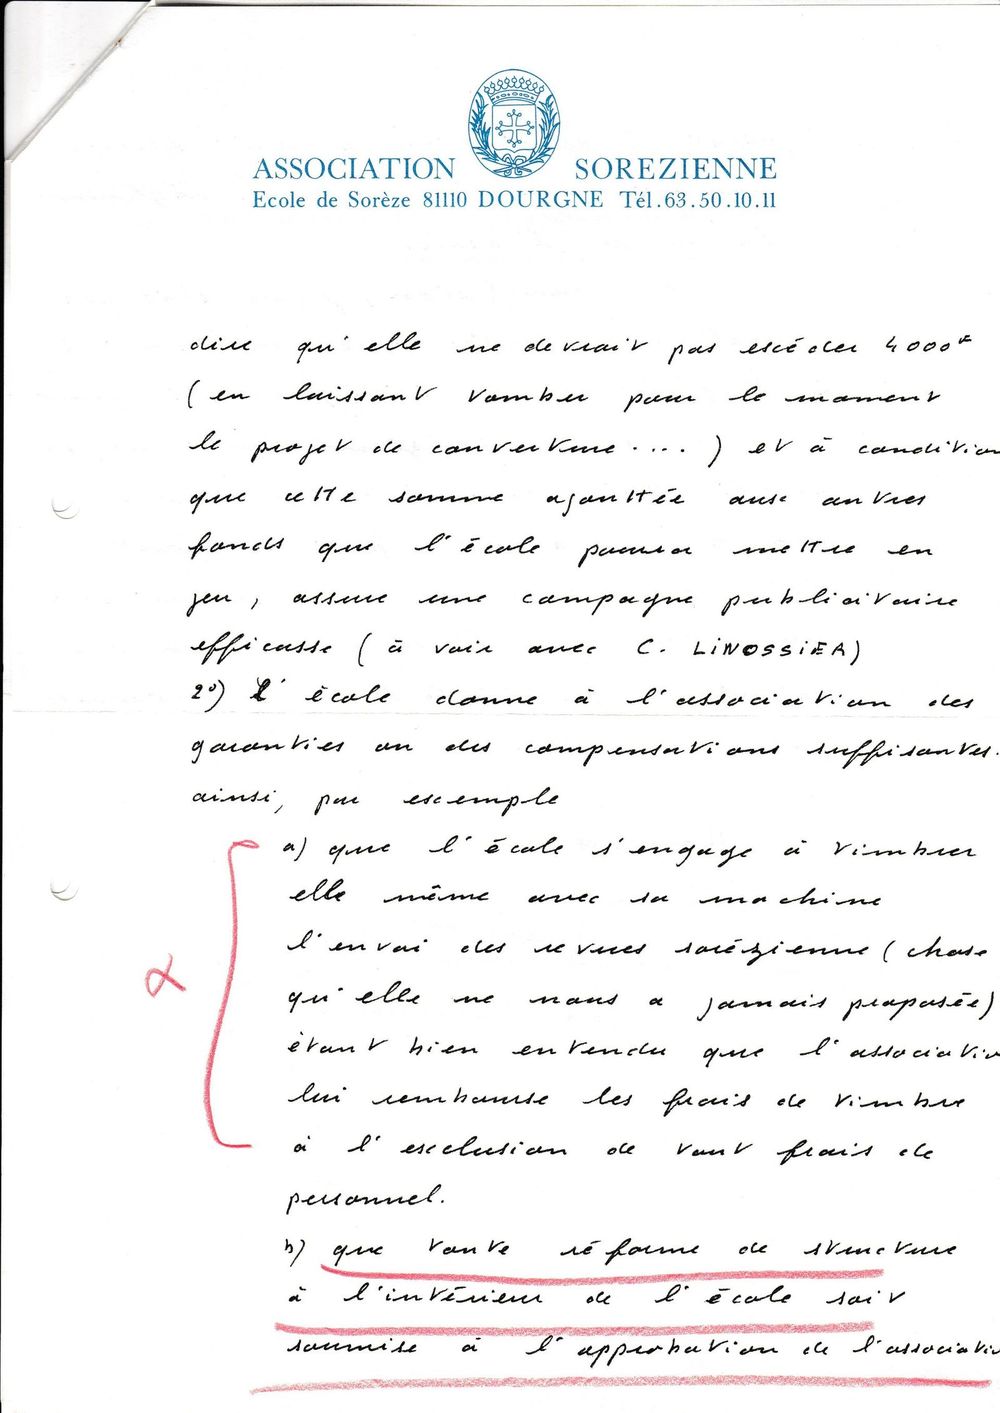 ASSOCIATION SOREZIENNE
Ecole de Sorèze 81110 DOURGNE Tél.63.50.10.11
dire qu'elle ne devrait pas escéder 4000F
(en laissant tomber pour le moment
le projet de converture ....) et à condition
que cette somme ajouttée aux autres
fonds que l'école pourra mettre en
jeu, assure une compagne publicitaire
efficasse (à voir avec C. LINOSSIER)
2°) L'école donne à l'association des
garanties ou des compensations suffisantes.
ainsi, par escemple
a) que l'école s'engage à timbrer
elle même avec sa machine
l'envoi des revues sorézienne (chose
qu'elle ne nous a jamais proposée)
étant bien entendu que l'associatio
lui rembourse les frais de timbre
à l'esclusion de tout frais de
personnel.
b) que toute réforme de structure
à l'intérieur de l'école soit
soumise à l'approbation de l'associatio